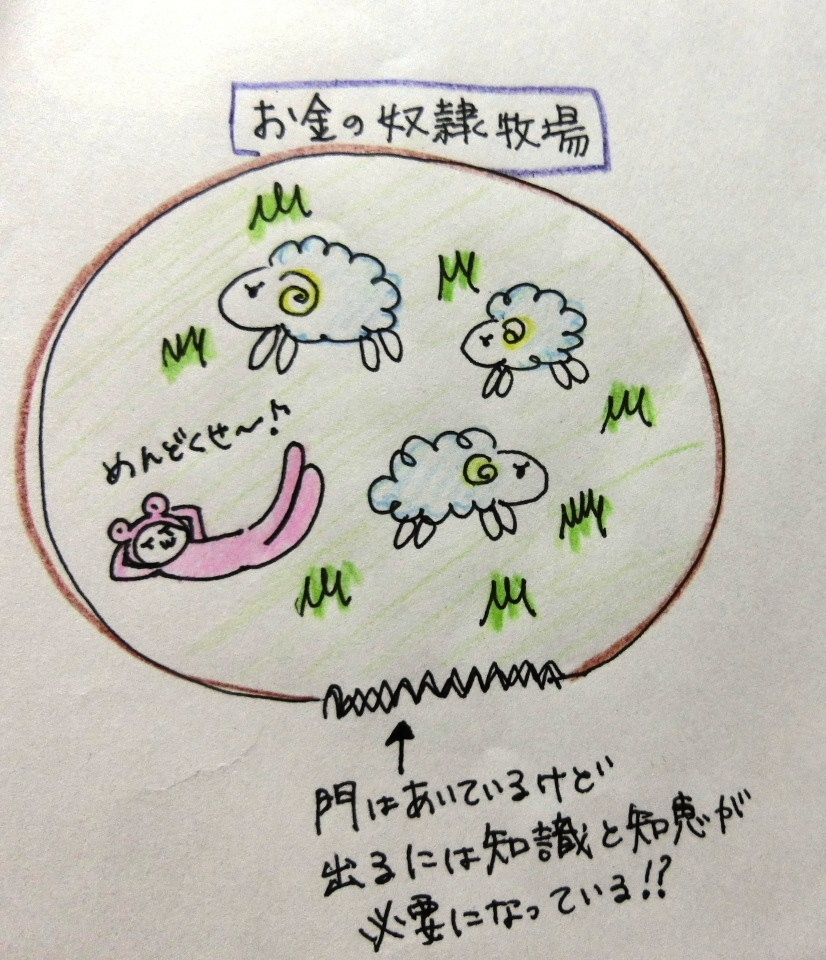 お金の奴隷牧場
めんどくせ〜♪
門はあいているけど
出るには知識と知恵が
必要になっている!?